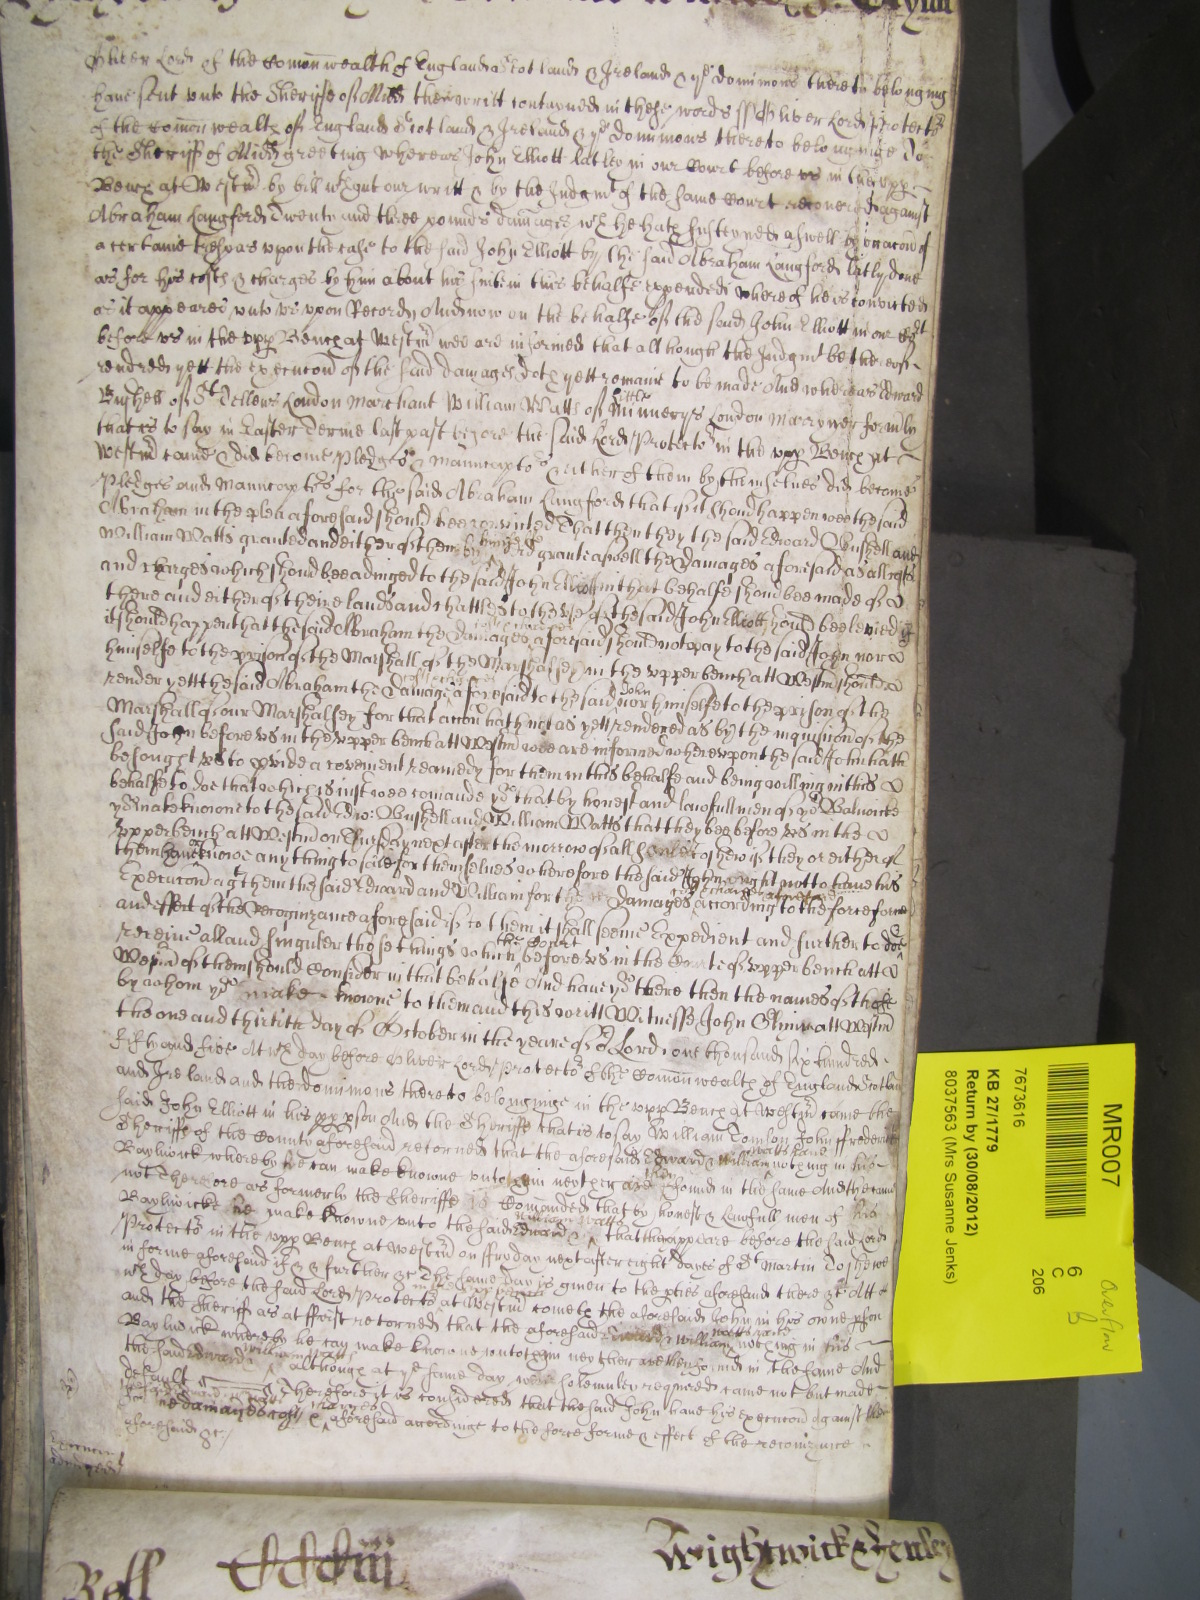 Oliver Lord of the Com̄onwealth of England Scotland & Ireland & ye dominions thereto belonging
have sent unto the Sheriffe of Midd their writt contayned in these words ss Oliver Lord Protector
of the Com̄onwealth of England Scotland & Ireland & ye dominions thereto belonginge To
the Sheriff of Midd greeting Whereas John Elliott lately in our Court before us in the upp
Bench at Westmr by bill wthout our writt & by the Judgmt of the same Court recovered against
Abraham Langford Twenty and three pounds damages wch he hath susteyned aswell by reason of
a certaine trespas upon the case to the said John Elliott by the said Abraham Langford lately done
as for his costs & charges by him about his suite in this behalfe expended whereof he is convicted
as it appeares unto us upon Record And now on the behalfe of the said John Elliott in our Court
before us in the upp Bench at Westmr wee are informed that although the Judgmt be thereof
rendred yett the execucon of the said damages doth yett remaine to be made And whereas Edward
Bushell of St Ellens London Marchant William Watts of little Minnerys London formly
that is to say in Easter Terme last past before the said Lord Protector in the upp Bench at
Westmr came & did become pledges & manucaptors & either of them by themselves did become
pledges and Manucaptors for the said Abraham Langford that if it should happen the said
Abraham in the plea aforesaid should bee convicted That then they the said Edward Bushell and
William Watts granted and either of them by himselfe did grante aswell the Damages aforesaid as all costs
and charges which should bee adiuged to the said John Elliott in that behalfe should bee made of
there and either of theire lands and chattles to the use of the said John Elliott should bee levied if
it should happen that the said Abraham the Damages costs & charges aforesaid should not pay to the said John nor
himselfe to the prison of the Marshall of the Marshalsey in the upper bench att Westmr should
render yett the said Abraham the Damages aforesaid to the said John nor himselfe to the prison of the
Marshall of our Marshalsey for that accon hath not as yett rendered as by the inquision of the
said John before us in the upper bench att Westmr wee are informed whereupon the said John hath
besought us to provide a covenient reamedy for them in this behalfe and being willing in this
behalfe to doe that which is just wee comande you that by honest and lawfull men of yor Baliwicke
you make knowne to the said Edw: Bushell and William Watts that they bee before us in the
upper bench att Westmr on Thursday next after the morrow of all Soules to shew if they or either of
them have or knowe any thing to saie for themselves wherefore the said John ought not to have his
Execucon agt them the said Edward and William for the Damages according to the force forme
and effect of the Recognizance aforesaid if to them it shall seeme Expedient and further to doe
receive all and singuler those things which the Court before us in the of upper bench att
Westmr of them should Consider in that behalfe And have you there then the names of those
by whom you make knowne to them and this writt Wittnesse John Glynn att Westmr
the one and thirtith day of October in the yeare of or Lord one thousand six hundred
Fifty and five At wch day before Oliver Lord Protector of the Com̄onwealth of England Scotland
and Ireland and the dominions thereto belonginge in the upp Bench at Westmr came the
said John Elliott in his pp pson And the Sherriffs that is to say William John ffrederick
Sheriffs of the County aforesaid retorned that the aforesaid Edward & William Watts have nothing in his
Baylwick whereby he can make knowne unto them neyther are they found in the same And they came
not Therefore as formerly the Sheriffe is Comanded that by honest & Lawfull men of his
Baylwicke he make knowne unto the said Edward & William Watts that they appeare before the said Lord
Protector in the upp Bench at Westmr on ffryday next after eight dayes of St Martin To shewe
in forme aforesaid if &c & further &c The same day is given to the pties aforesaid there &c Att
wch day before the said Lord Protector at Westmr cometh the aforesaid John in his owne pson
and the Sheriff as at ffirst retorned that the aforesaid Edward & William Watts have nothing in his
Baylwick whereby he can make knowne unto them neyther are they found in the same And
the said Edward & William Watts although at ye same day were solemnley required came not but made
default Therefore it is considered that the said John have his execucon against the
said Edward & William damages costs & charges aforesaid accordinge to the force forme & effect of the reconizance
aforesaid &c
Roll
Wightwick & Henley
MR007
7673616
KB 27/1779
Return by (30/08/2012)
8037563 (Mrs Susanne Jenks)
6
C
206